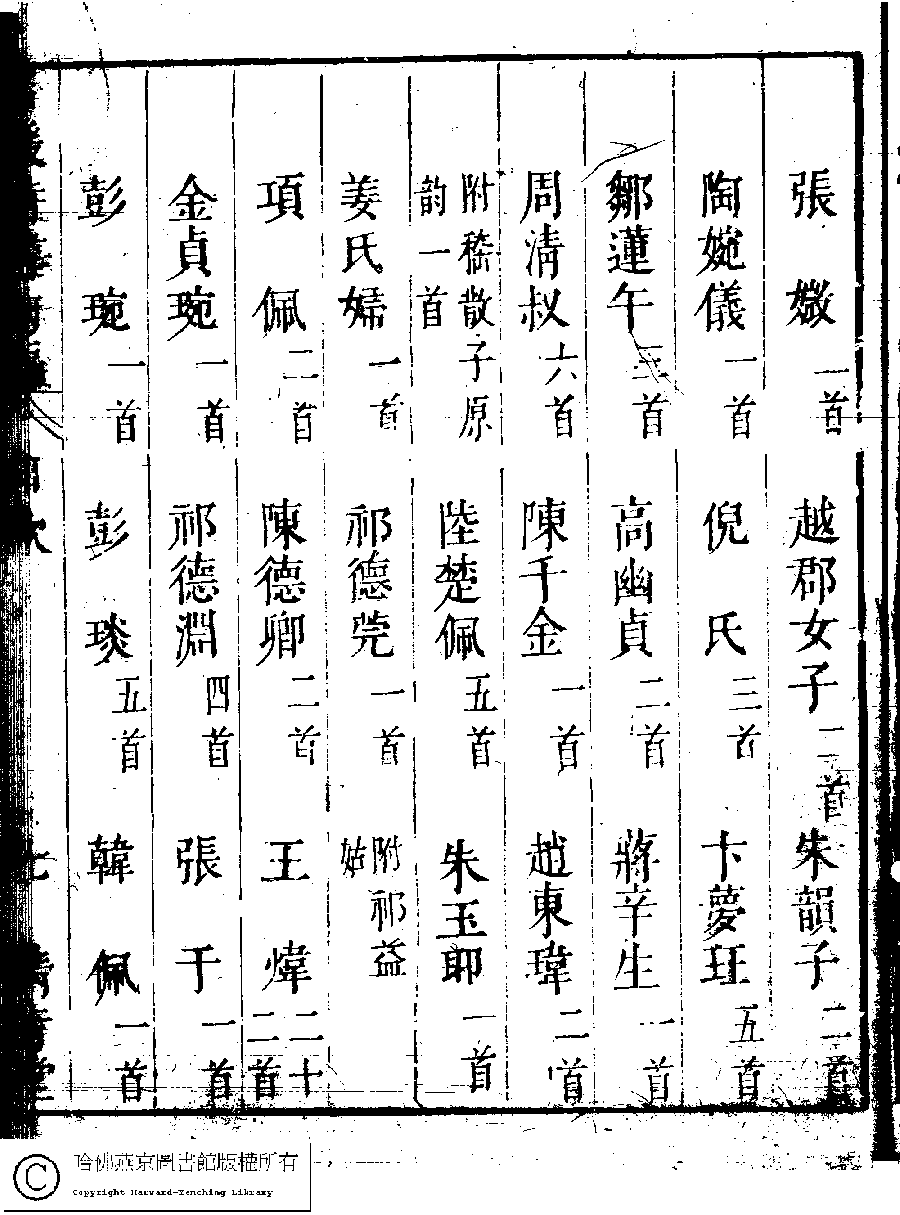 張嫩一首 越郡女子二首 朱韻子二首
陶婉儀一首 倪氏三首 卞夢玨五首
鄒蓮午三首 高幽貞二首 蔣辛生一首
周淸叔六首 陳千金一首 趙東瑋二首
附嵇散子原韵一首 陸楚佩五首 朱玉耶一首
姜氏婦一首 祁德茝一首 附祁益姑
項佩二首 陳德卿二首 王煒二十二首
金貞琬一首 祁德淵四首 張于一首
彭琬一首 彭琰五首 韓佩一首
哈佛燕京圖書館版權所有
Copyright Harvard-Yenching Library